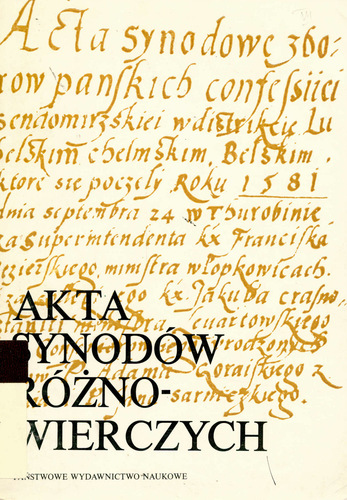 Acta synodowe zbo-
row panskich confessiiei
sendomirzskiei w distrikcie Lu
belskim chelmskim, Belskim,
ktore sie poczęly Roku 1581
dnia septembra 24 w Thurobinie
za superintendenta kx Franciska
Jezierskiego, ministra włopkowicach.
kx. Jakuba crasno
czwartowskiego
rodzonych
Adama Goraiskiego z
sarnickiego.
AKTA
SYNODÓW
RÓŻNO-
WIERCZYCH
PAŃSTWOWE WYDAWNICTWO NAUKOWE